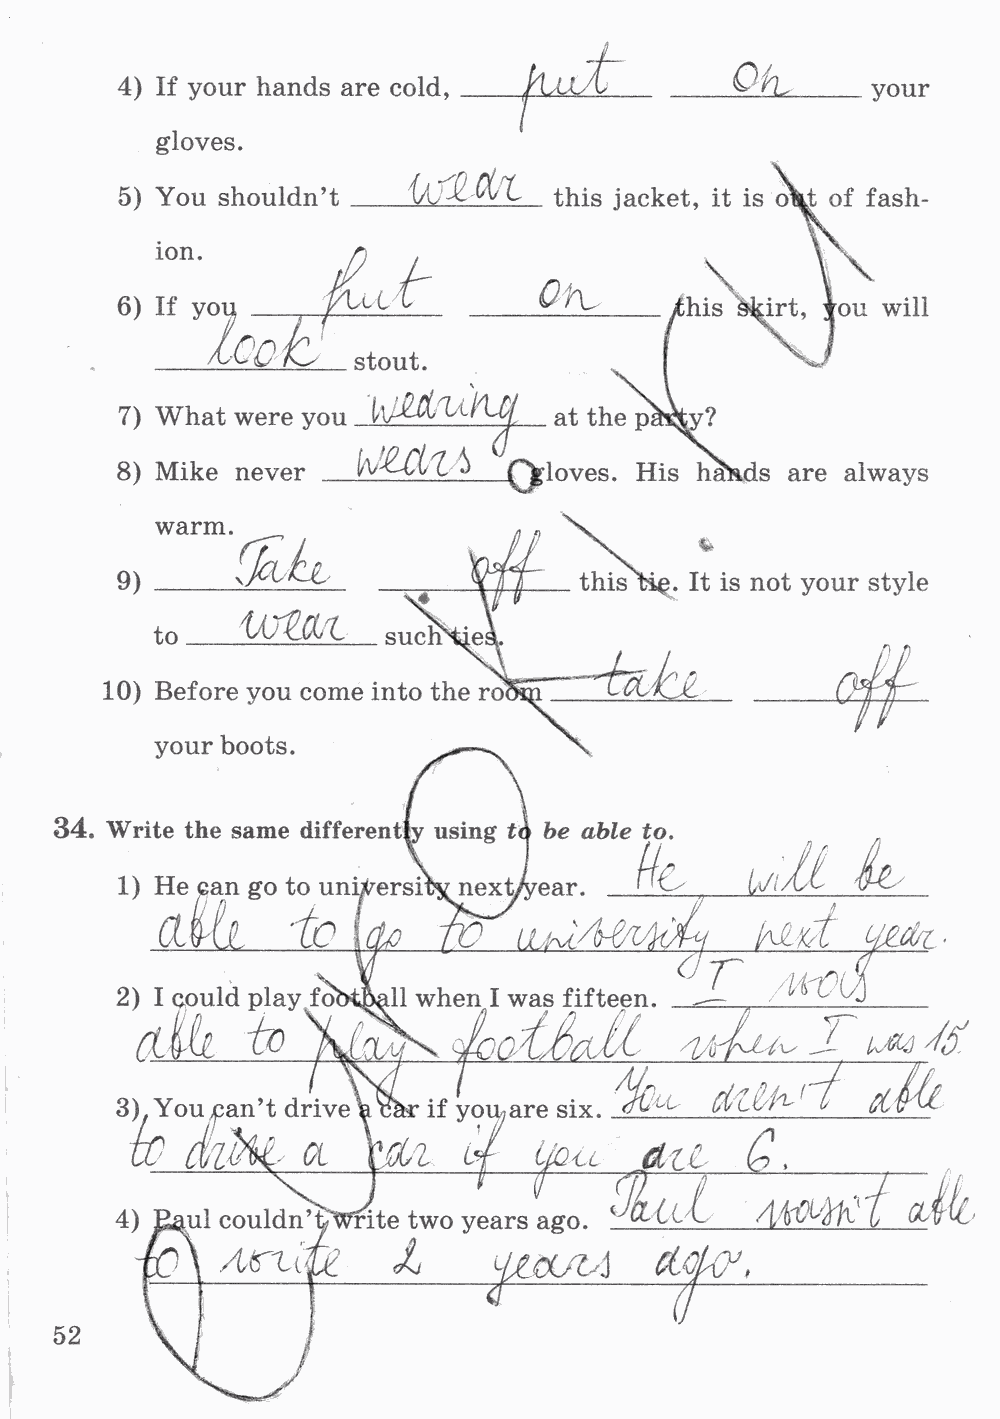 4) If your hands are cold, put on your
gloves.
5) You shouldn't wear this jacket, it is out of fash-
ion.
6) If you put on this skirt, you will
look stout.
7) What were you wearing at the party?
8) Mike never wears gloves. His hands are always
warm.
9) Take off this tie. It is not your style
to wear such ties.
10) Before you come into the room take off
your boots.
34. Write the same differently using to be able to.
1) He can go to university next year. He will be
able to go to university next year.
2) I could play football when I was fifteen. I was
able to play football when I was 15.
3) You can't drive a car if you are six. You aren't able
to drive a car if you are 6.
4) Paul couldn't write two years ago. Paul wasn't able
to write 2 years ago.
52